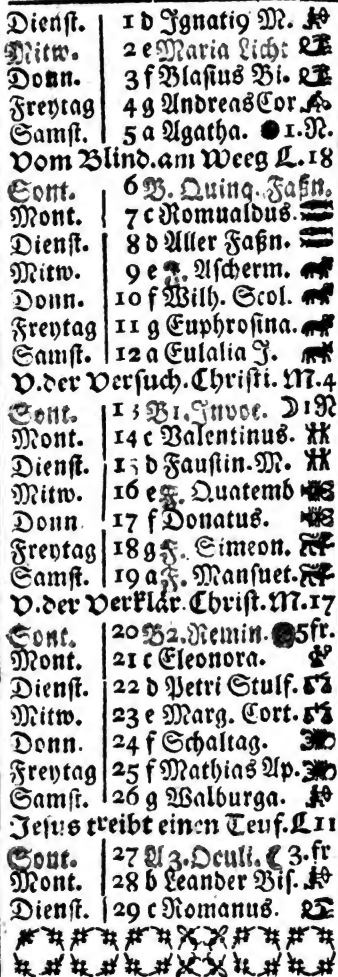 Dienst. 1 d Ignati9 M.
Mitw. 2 e Maria Licht
Donn. 3 f Blasius Bi.
Freytag 4 g Andreas Cor.
Samst. 5 a Agatha. ●1.N.
Vom Blind. am Weeg L.18
Sont. 6 B. Quinq. Faßn.
Mont. 7 c Romualdus.
Dienst. 8 d Aller Faßn.
Mitw. 9 e F. Ascherm.
Donn. 10 f Wilh. Scol.
Freytag 11 g Euphrosina.
Samst. 12 a Eulalia J.
V. der Versuch. Christi. M.4
Sont. 13 B1. Invoc. ☽1N
Mont. 14 c Valentinus.
Dienst. 15 d Faustin. M.
Mitw. 16 e F. Quatemb
Donn 17 f Donatus.
Freytag 18 g F. Simeon.
Samst. 19 a F. Mansuet.
V. der Verklär. Christ. M.17
Sont. 20 B2. Remin. 5fr.
Mont. 21 c Eleonora.
Dienst. 22 d Petri Stulf.
Mitw. 23 e Marg. Cort.
Donn. 24 f Schaltag.
Freytag 25 f Mathias Ap.
Samst. 26 g Walburga.
Jesus treibt einen Teuf. L 11
Sont. 27 A 3. Oculi. ☾ 3. fr
Mont. 28 b Leander Bis.
Dienst. 29 c Romanus.